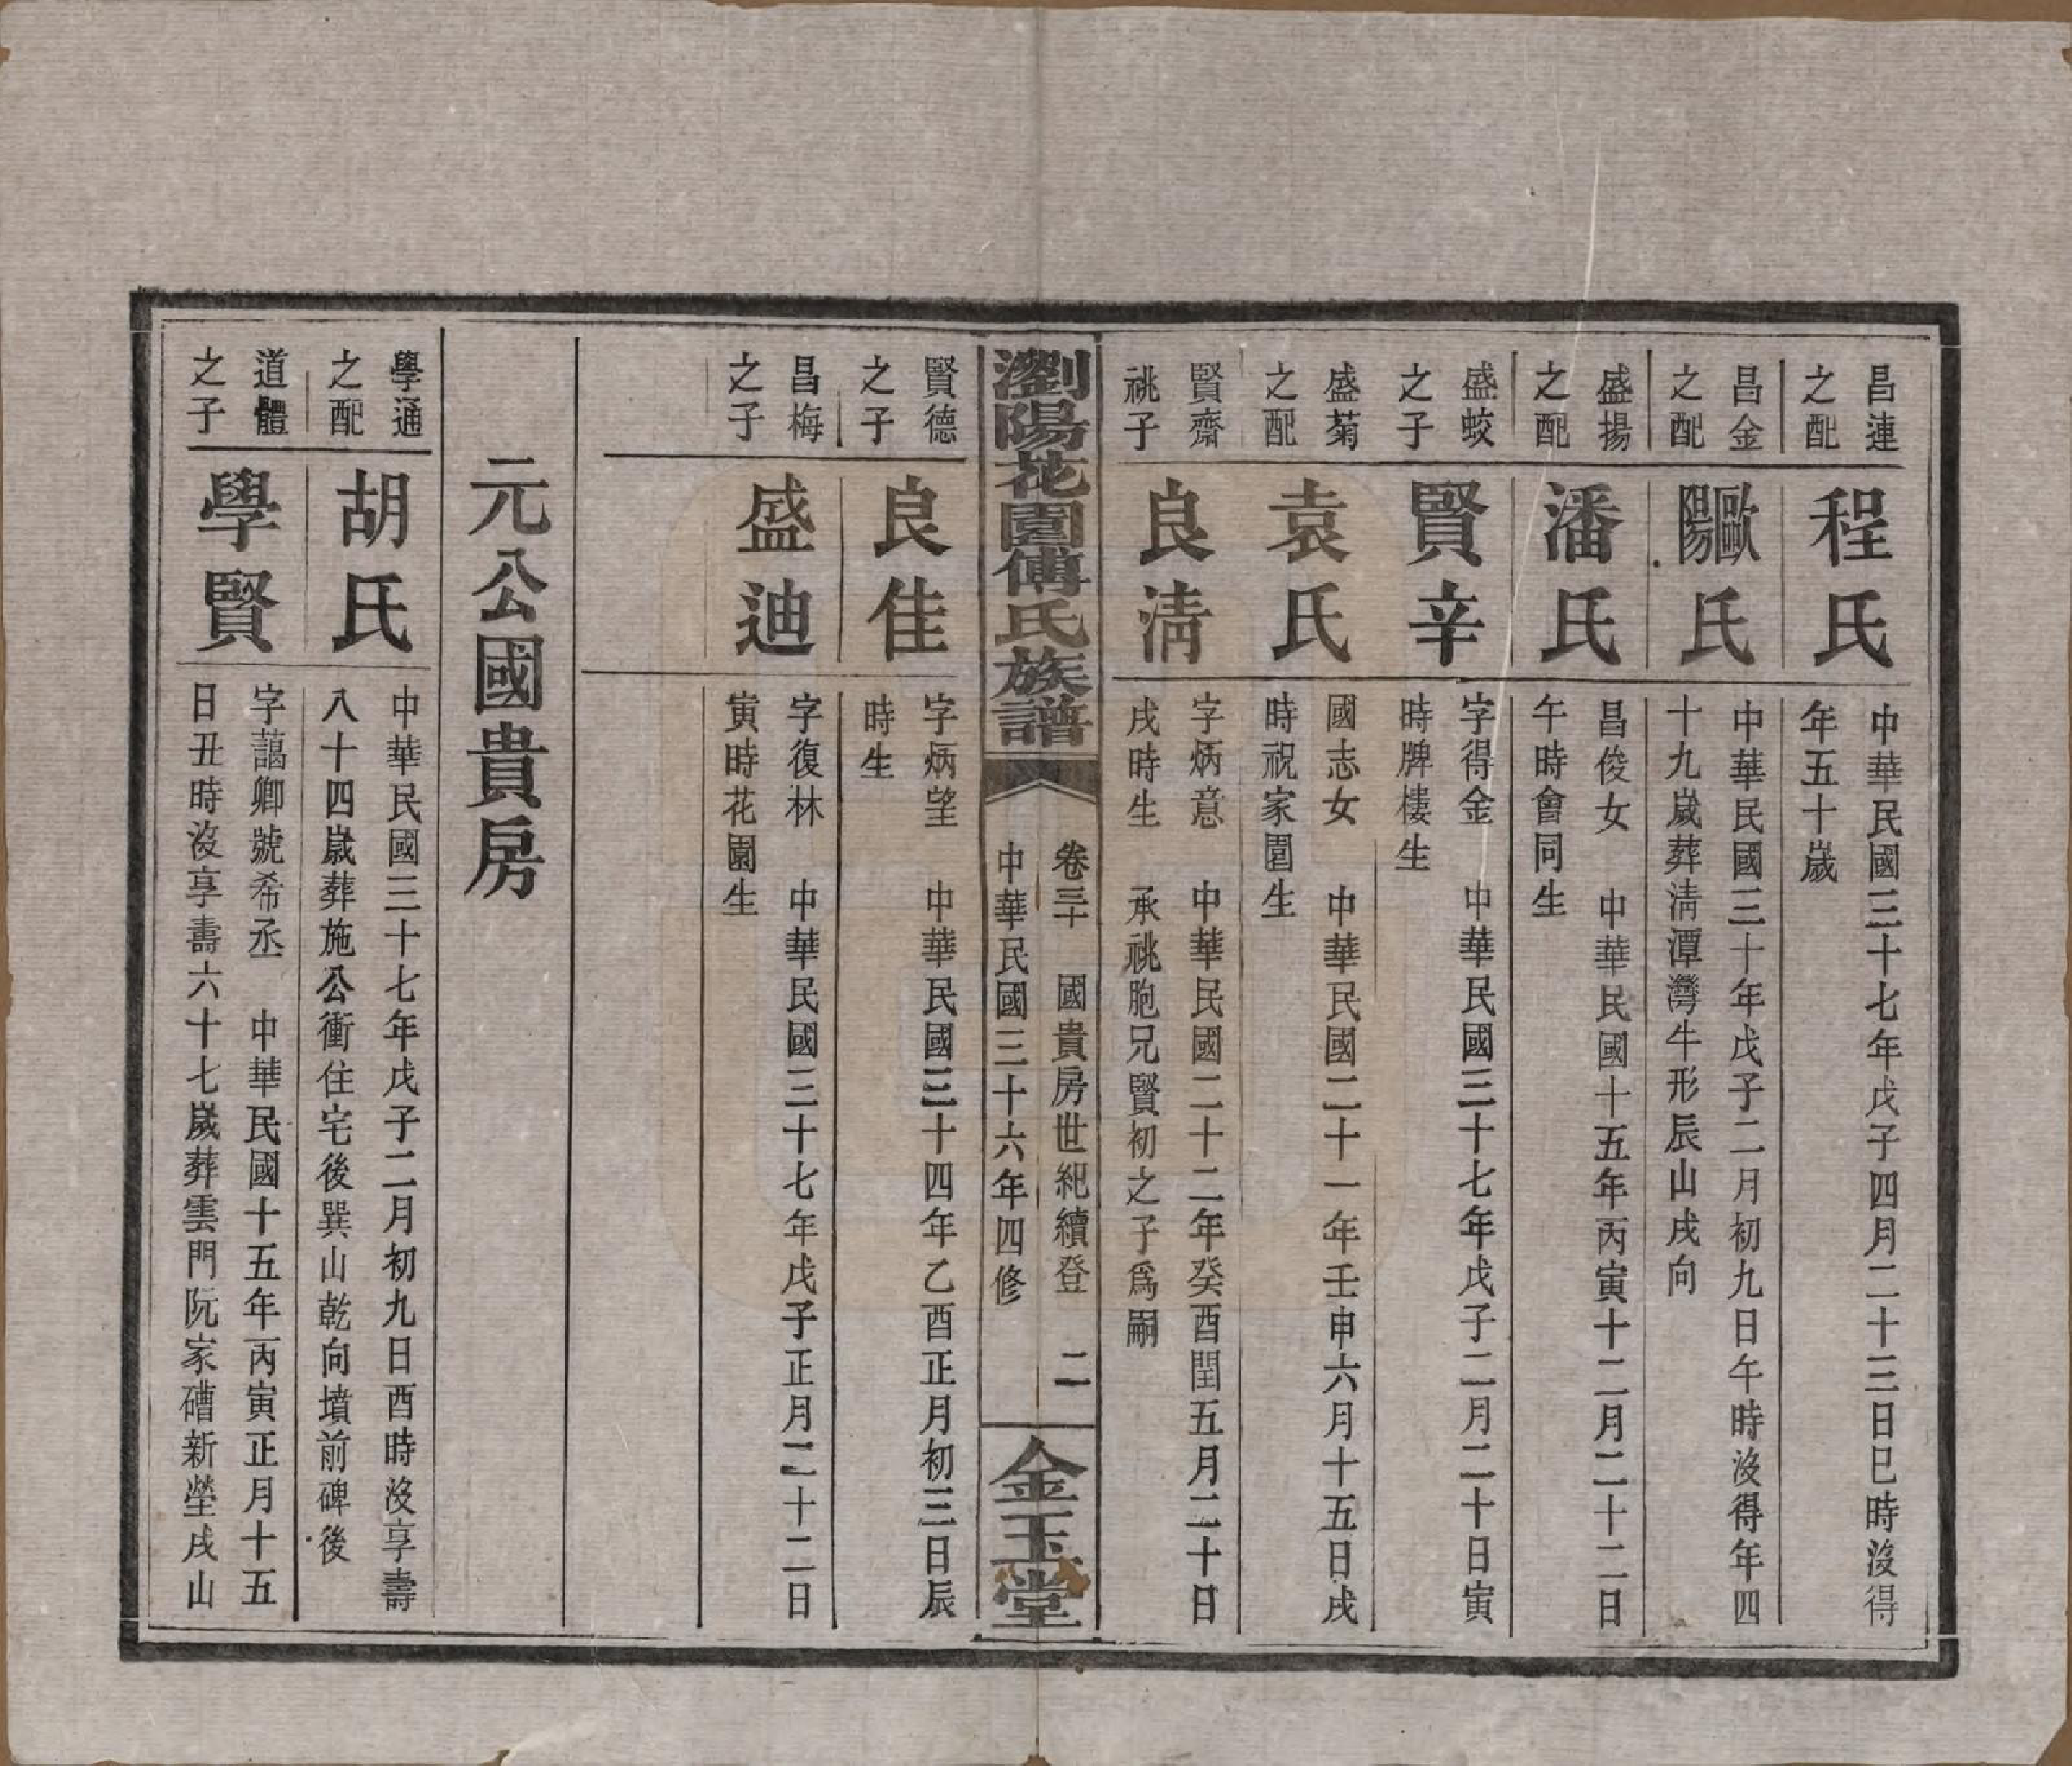 昌連
之配
程氏
中華民國三十七年戊子四月二十三日巳時沒得
年五十歲
昌金
之配
歐陽氏
中華民國三十年戊子二月初九日午時沒得年四
十九歲葬清潭灣牛形辰山戌向
盛揚
之配
潘氏
昌俊女 中華民國十五年丙寅十二月二十二日
午時會同生
盛蛟
之子
賢辛
字得金 中華民國三十七年戊子二月二十日寅
時牌樓生
盛菊
之配
袁氏
國志女 中華民國二十一年壬申六月十五日戌
時祝家園生
賢齋
祧子
良清
字炳意 中華民國二十二年癸酉閏五月二十日
戌時生 承祧胞兄賢初之子為嗣
瀏陽花園傅氏族譜
卷三十 國貴房世紀續登 二
中華民國三十六年四修
金玉堂
賢德
之子
良佳
字炳望 中華民國三十四年乙酉正月初三日辰
時生
昌梅
之子
盛迪
字復林 中華民國三十七年戊子正月二十二日
寅時花園生
元公國貴房
學通
之配
胡氏
中華民國三十七年戊子二月初九日酉時沒享壽
八十四歲葬施公衝住宅後巽山乾向墳前碑後
道體
之子
學賢
字藹卿號希丞 中華民國十五年丙寅正月十五
日丑時沒享壽六十七歲葬雲門阮家磽新塋戌山